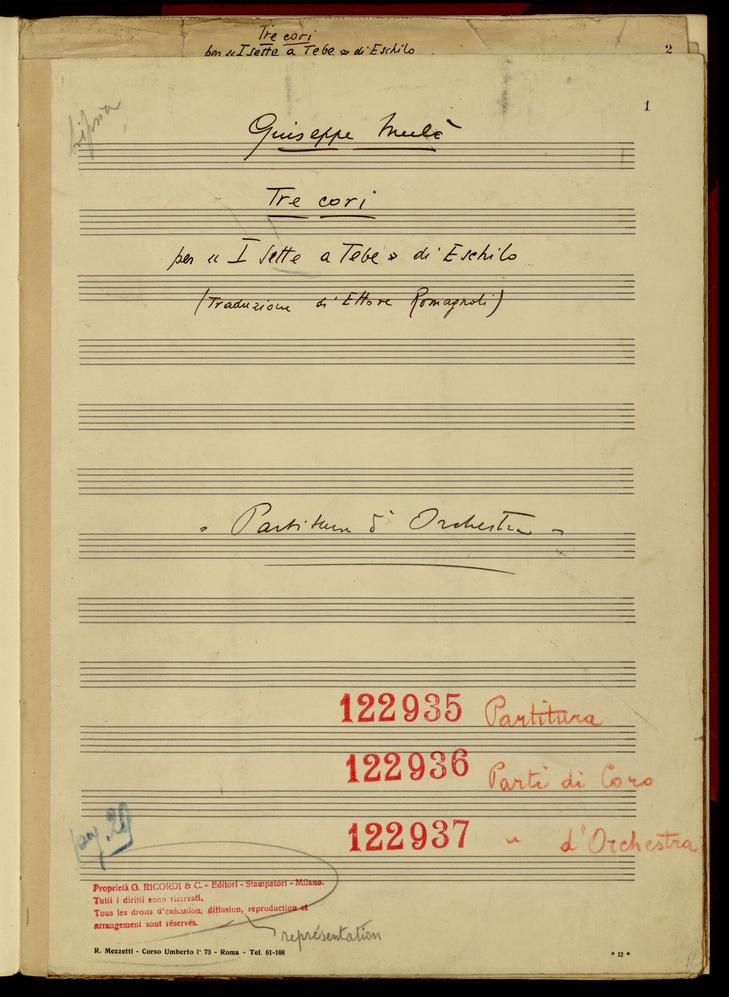 Tre cori
per « I sette a Tebe » di Eschilo
2
1
Lipsia
Giuseppe Mulè
Tre cori
per « I Sette a Tebe » di Eschilo
(Traduzione di Ettore Romagnoli)
- Partitura d'Orchestra -
122935 Partitura
122936 Parti di Coro
122937 " d'Orchestra
pag. 20
Proprietà G. RICORDI & C. - Editori - Stampatori - Milano.
Tutti i diritti sono riservati.
Tous les droits d'exécution, diffusion, reproduction et
arrangement sont réservés.
représentation
R. Mezzetti - Corso Umberto I° 73 - Roma - Tel. 61-168
* 12 *